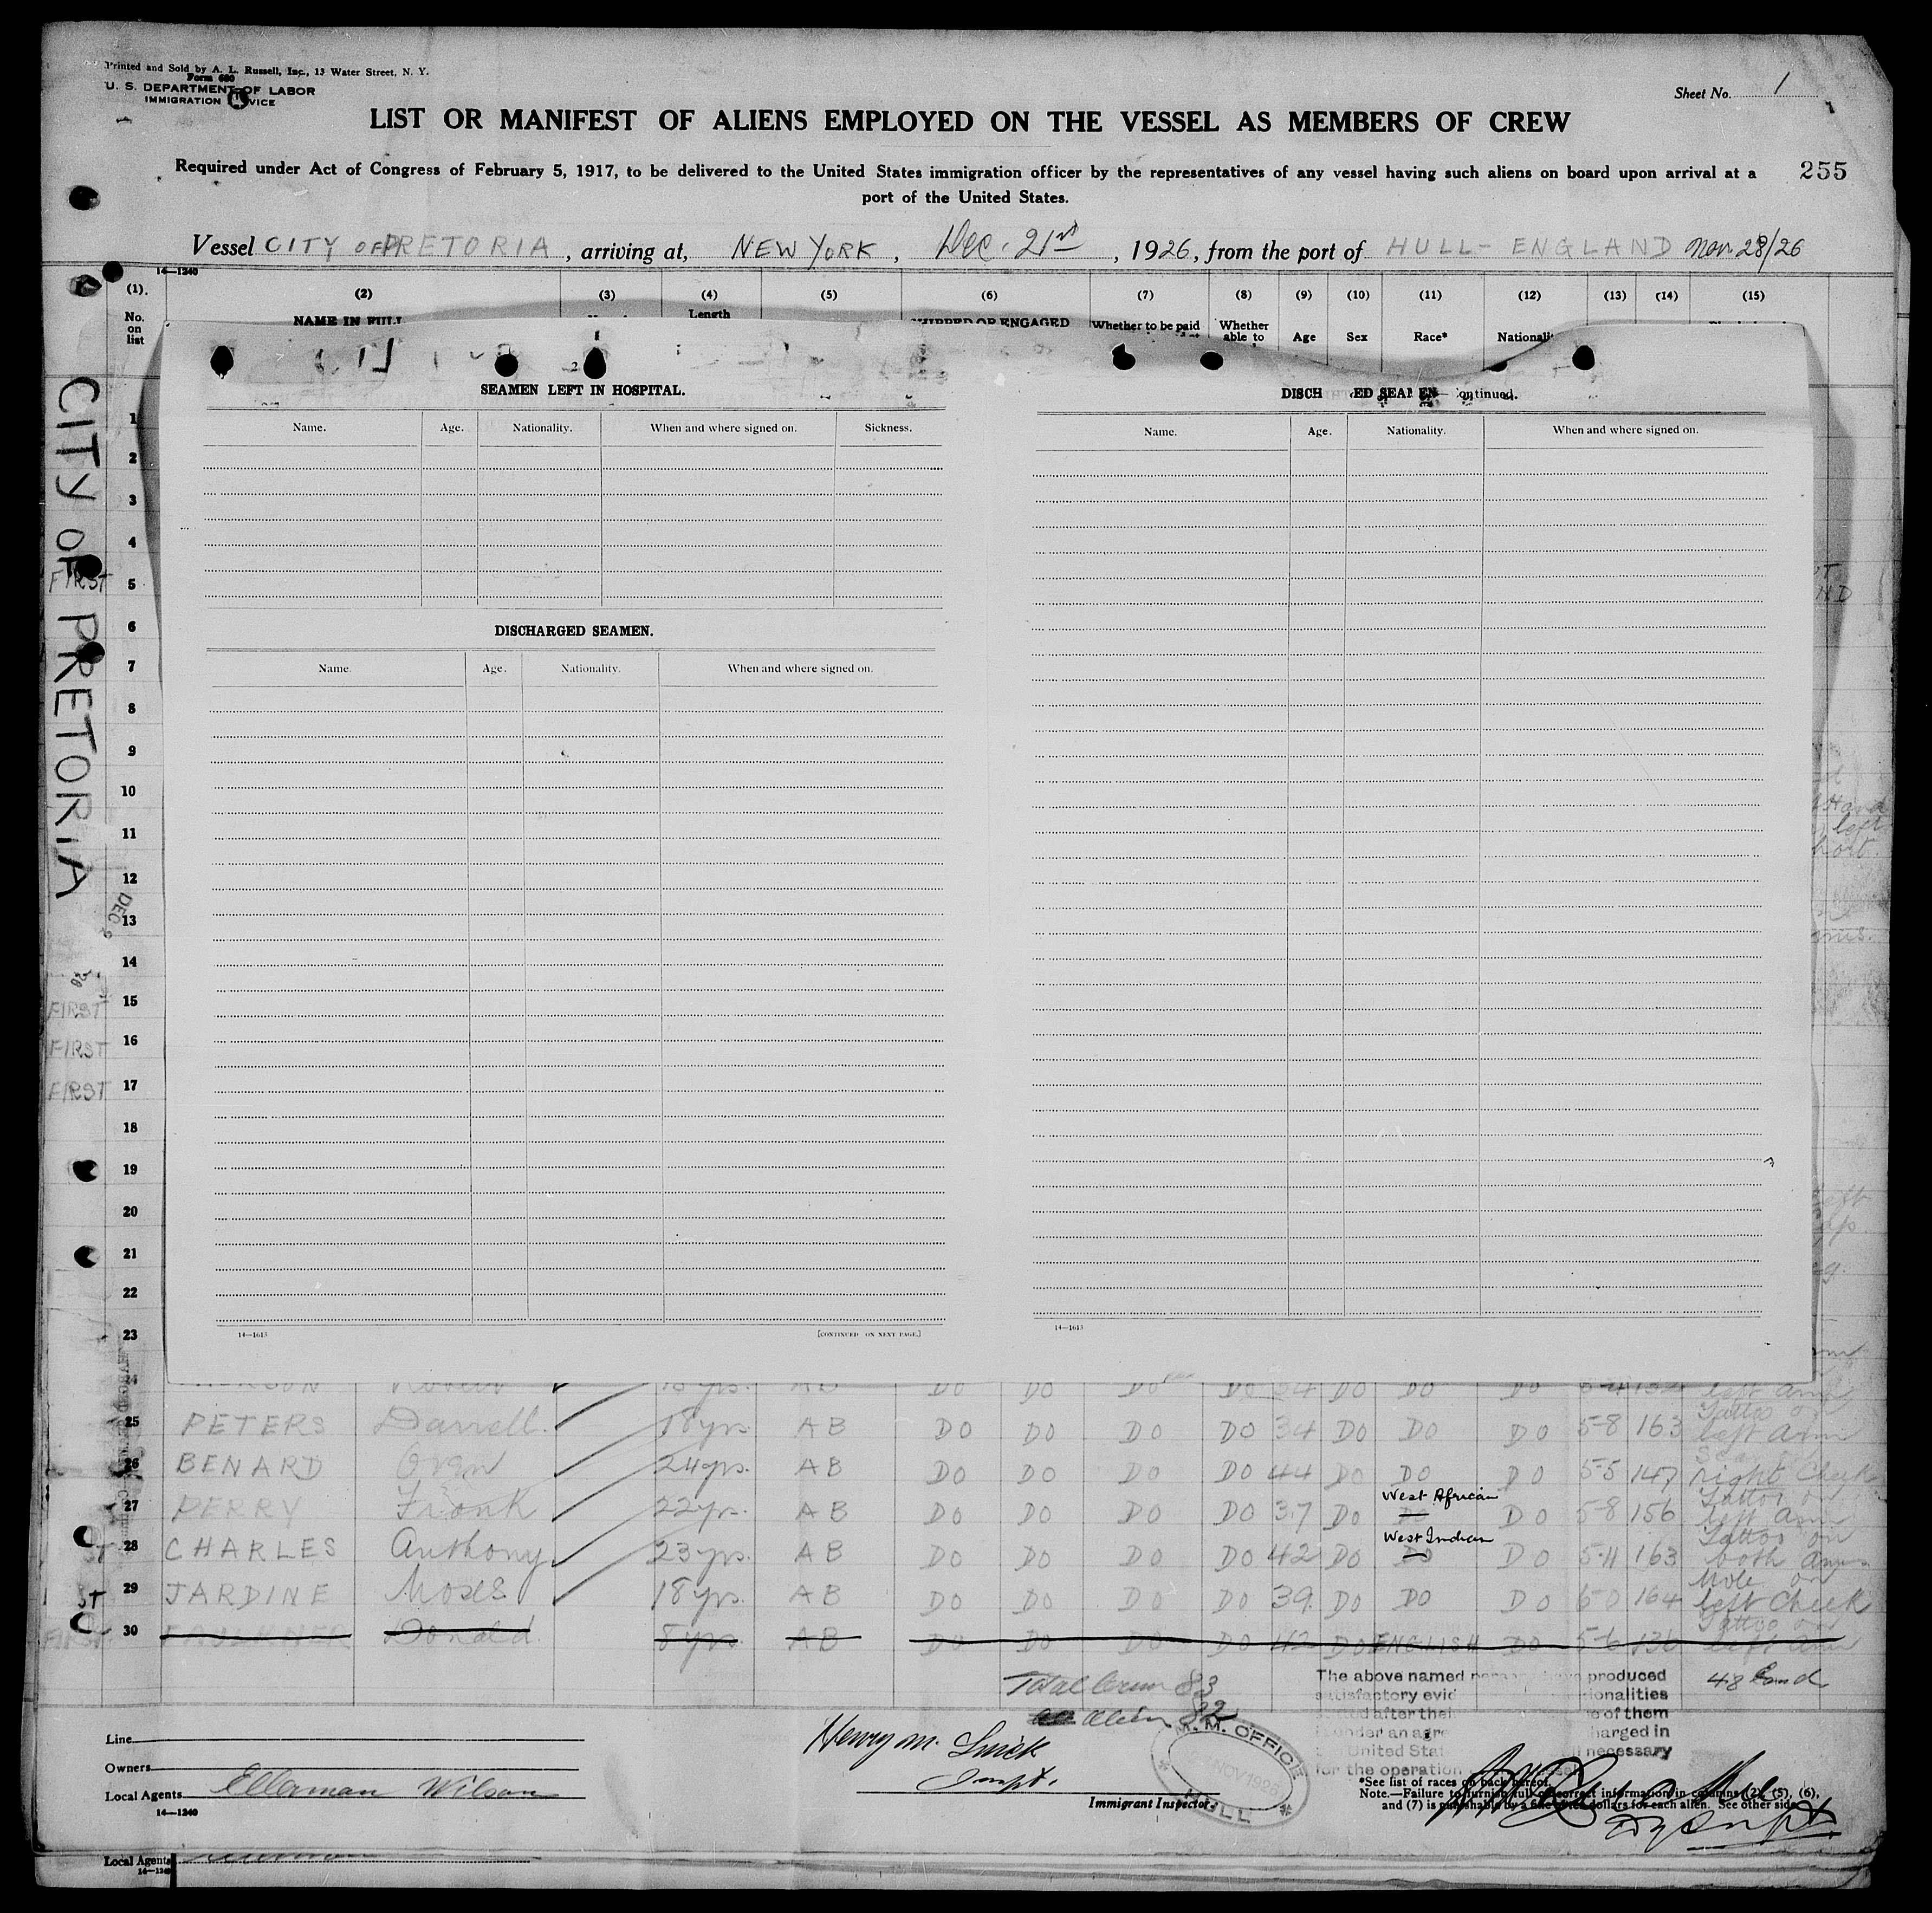 Printed and Sold by A. L. Russell, Inc., 13 Water Street, N. Y.
Form 680
U. S. DEPARTMENT OF LABOR
IMMIGRATION SERVICE
Sheet No. 1
LIST OR MANIFEST OF ALIENS EMPLOYED ON THE VESSEL AS MEMBERS OF CREW
Required under Act of Congress of February 5, 1917, to be delivered to the United States immigration officer by the representatives of any vessel having such aliens on board upon arrival at a
port of the United States.
255
Vessel CITY OF PRETORIA, arriving at, NEW YORK, Dec. 21st, 1926, from the port of HULL - ENGLAND Nov. 28/26
14—1240
(1). (2) (3) (4) (5) (6) (7) (8) (9) (10) (11) (12) (13) (14) (15)
No. on list NAME IN FULL Length SHIPPED OR ENGAGED Whether to be paid Whether able to Age Sex Race* Nationality
CITY OF PRETORIA
SEAMEN LEFT IN HOSPITAL.
Name. Age. Nationality. When and where signed on. Sickness.
DISCHARGED SEAMEN.
Name. Age. Nationality. When and where signed on.
14—1613 [CONTINUED ON NEXT PAGE.]
DISCHARGED SEAMEN—Continued.
Name. Age. Nationality. When and where signed on.
14—1613
1
2
3
4
FIRST 5
6
7
8
9
10
11
12
DEC
13
14
FIRST 15
FIRST 16
FIRST 17
18
19
20
21
22
23
24 DO DO DO DO 34 DO DO DO left arm
25 PETERS Darrell 18 yrs. AB DO DO DO DO 34 DO DO DO 5-8 163 Tattoo on left arm
26 BENARD 24 yrs. AB DO DO DO DO 44 DO DO DO 5-5 147 right Cheek
27 PERRY Frank 22 yrs. AB DO DO DO DO 37 DO West African DO 5-8 156 Tattoo on left arm
28 CHARLES Anthony 23 yrs. AB DO DO DO DO 42 DO West Indian DO 5-11 163 Tattoo on both arms
29 JARDINE Moses 18 yrs. AB DO DO DO DO 39 DO DO DO 5-0 164 Mole on left Cheek
FIRST 30 FAULKNER Donald 8 yrs. AB DO DO DO DO 42 DO ENGLISH DO 5-6 136 Tattoo on left arm
Total Crew 83
Alien 82
The above named produced
satisfactory evid ionalities
after the e of them
under an agre harged in
United Stat necessary
for the operation
Line
Owners
Local Agents Ellerman Wilson
14—1240
Henry M.
Inspt.
Immigrant Inspector.
M. M. OFFICE
NOV 1926
HULL
*See list of races on back hereof.
Note.—Failure to furnish full or correct information in columns (2), (5), (6),
and (7) is punishable by a fine of ten dollars for each alien. See other side.
Local Agents
14—1240